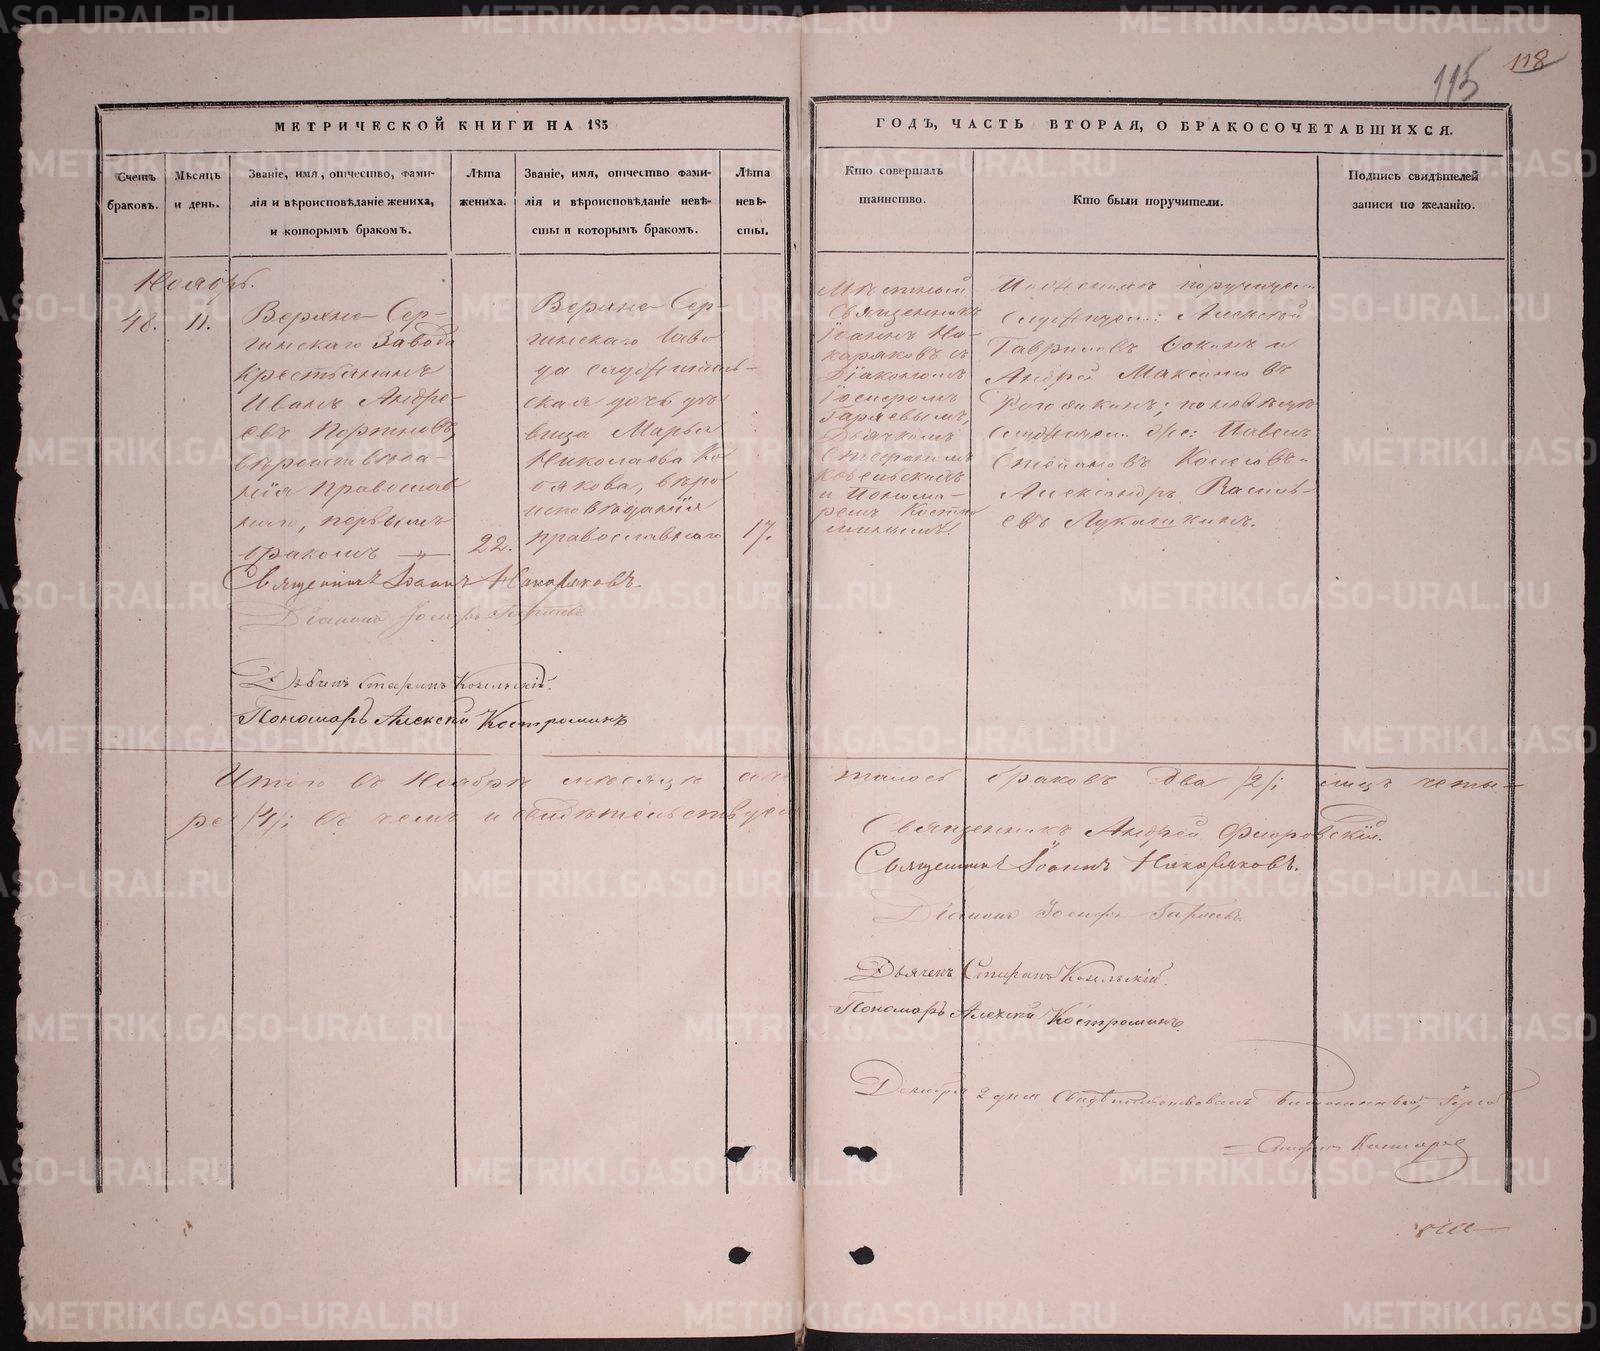 118
115
МЕТРИЧЕСКОЙ КНИГИ НА 185
ГОДЪ, ЧАСТЬ ВТОРАЯ, О БРАКОСОЧЕТАВШИХСЯ.
Счетъ
браковъ.
Мѣсяцъ
и день.
Званіе, имя, отчество, фами-
лія и вѣроисповѣданіе жениха,
и которымъ бракомъ.
Лѣта
жениха.
Званіе, имя, отчество фами-
лія и вѣроисповѣданіе невѣ-
сты и которымъ бракомъ.
Лѣта
невѣ-
сты.
Кто совершалъ
таинство.
Кто были поручители.
Подпись свидѣтелей
записи по желанію.
Ноябрь.
48.
11.
Верхне Сер-
гинскаго Завода
крестьянинъ
Иванъ Андре-
евъ
вѣроисповѣда-
нія православ
наго, первымъ
бракомъ
22.
Верхне Сер-
гинскаго Заво
да служитель-
ская дочь дѣ
вица Марья
Николаева
вѣро
исповѣданія
православнаго
17.
Мѣстный
Священникъ
Іоаннъ На-
каряковъ съ
Діакономъ
Іосифомъ
Гаряевымъ,
Дьячкомъ
Стефаномъ
Козельскимъ
и Понома-
ремъ Костро
минымъ.
поручители
Алексѣй
Гавриловъ и
Андрей Максимовъ
по невѣстѣ
Павелъ
Степановъ
Александръ Василь-
евъ Лукашкинъ.
Священникъ Іоаннъ Накаряковъ.
Діаконъ Іосифъ Гаряевъ
Дьячекъ Стефанъ Козельскій.
Пономарь Алексѣй Костроминъ
Итого въ Ноябрѣ мѣсяцѣ
браковъ два /2/; лицъ четы-
ре /4/; въ чемъ и свидѣтельствуемъ
Священникъ Андрей Флоровскій.
Священникъ Іоаннъ Накаряковъ.
Діаконъ Іосифъ Гаряевъ.
Дьячекъ Стефанъ Козельскій.
Пономарь Алексѣй Костроминъ.
Декабря 2 дня свидѣтельствовалъ
METRIKI.GASO-URAL.RU